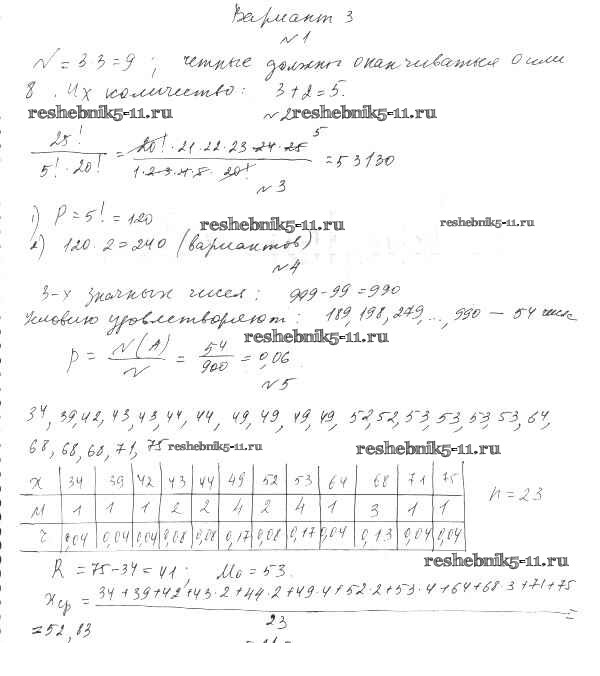 Вариант 3
№1
N = 3·3 = 9 ; четные должны оканчиваться 0 или
8 . Их количество: 3+2=5.
reshebnik5-11.ru №2 reshebnik5-11.ru
25! / 5! · 20! = 20! · 21 · 22 · 23 · 24 · 25 5 / 1·2·3·4·5 · 20! = 53130
№3
1) P = 5! = 120 reshebnik5-11.ru reshebnik5-11.ru
2) 120 · 2 = 240 (вариантов)
№4
3-х значных чисел: 999-99=990
Условию удовлетворяют: 189, 198, 279, ..., 990 — 54 числ
reshebnik5-11.ru
p = N(A) / N = 54 / 900 = 0,06
№5
34, 39, 42, 43, 43, 44, 44, 49, 49, 49, 49, 52, 52, 53, 53, 53, 53, 64,
68, 68, 68, 71, 75 reshebnik5-11.ru reshebnik5-11.ru
X 34 39 42 43 44 49 52 53 64 68 71 75
M 1 1 1 2 2 4 2 4 1 3 1 1 n = 23
r 0,04 0,04 0,04 0,08 0,08 0,17 0,08 0,17 0,04 0,13 0,04 0,04
reshebnik5-11.ru
R = 75-34=41; Mo = 53.
xср = 34+39+42+43·2+44·2+49·4+52·2+53·4+64+68·3+71+75 / 23 =
= 52,83